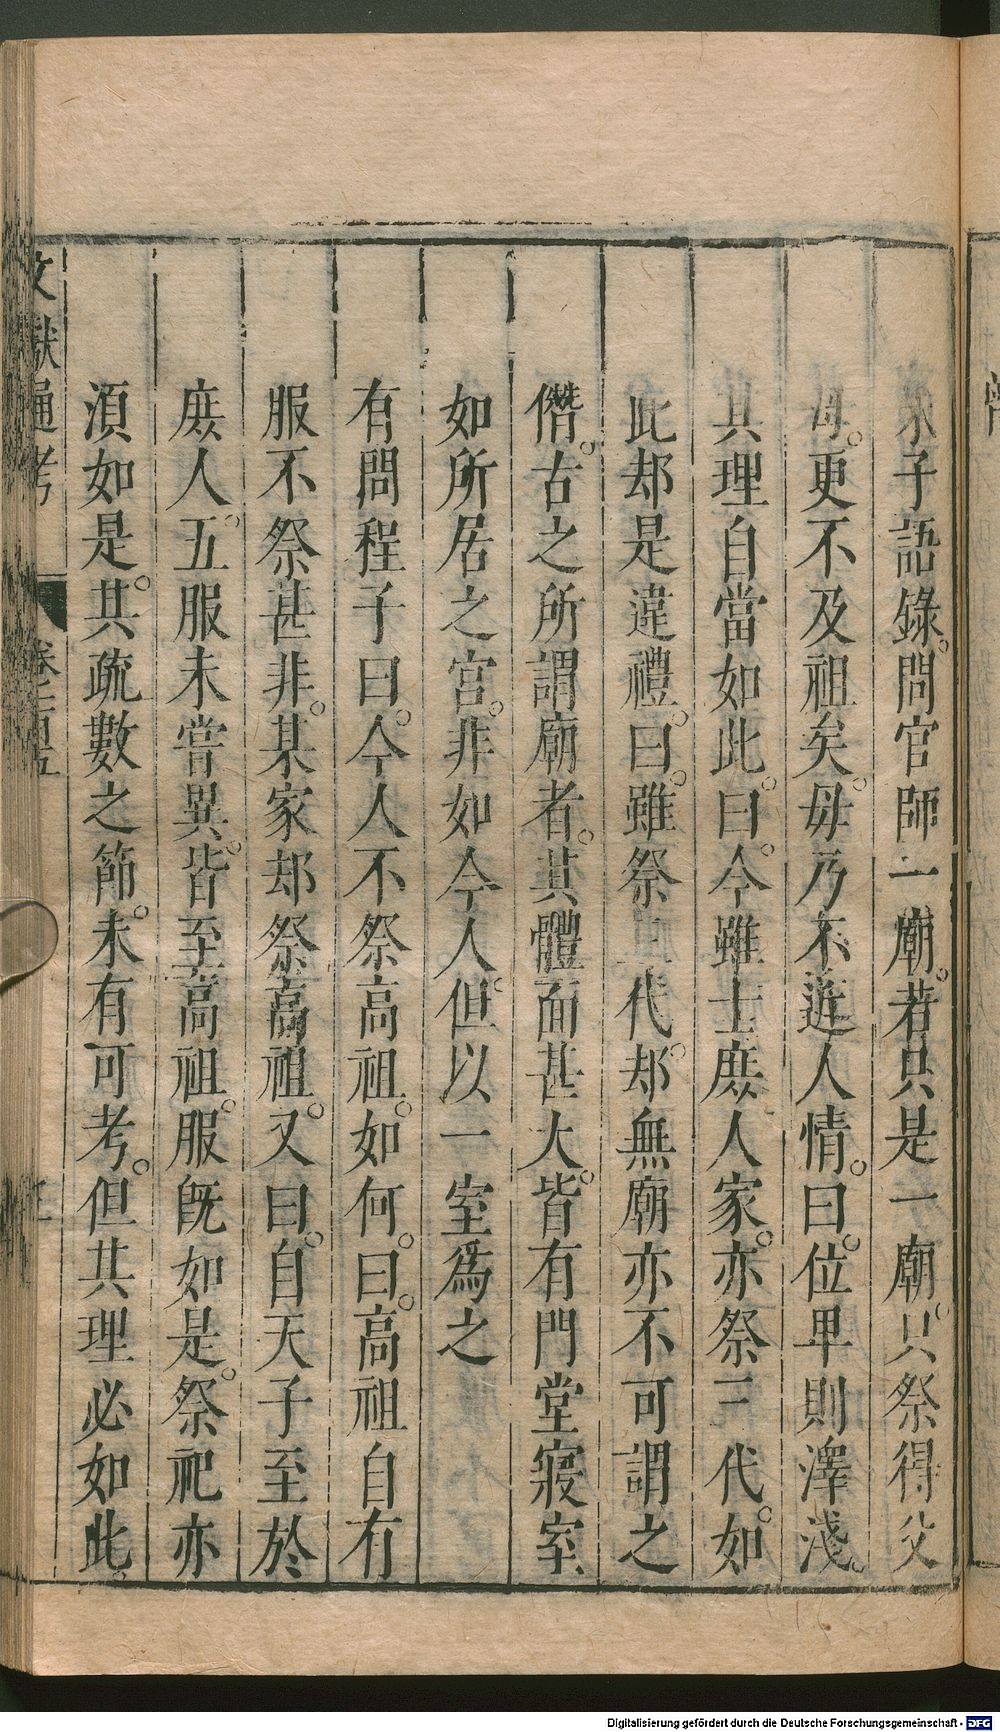 朱子語錄。問官師一廟。若只是一廟。只祭得父
母。更不及祖矣。毋乃不近人情。曰。位卑則澤淺。
其理自當如此。曰。今雖士庶人家。亦祭三代。如
此却是違禮。曰。雖祭三代。却無廟亦不可謂之
僭。古之所謂廟者。其體面甚大。皆有門堂寢室
如所居之宮。非如今人。但以一室爲之
有問程子曰。今人不祭高祖。如何。曰。高祖自有
服不祭甚非。某家却祭高祖。又曰。自天子至於
庶人。五服未嘗異。皆至高祖。服旣如是。祭祀亦
湏如是。其疏數之節。未有可考。但其理必如此。
文獻通考
Digitalisierung gefördert durch die Deutsche Forschungsgemeinschaft - DFG